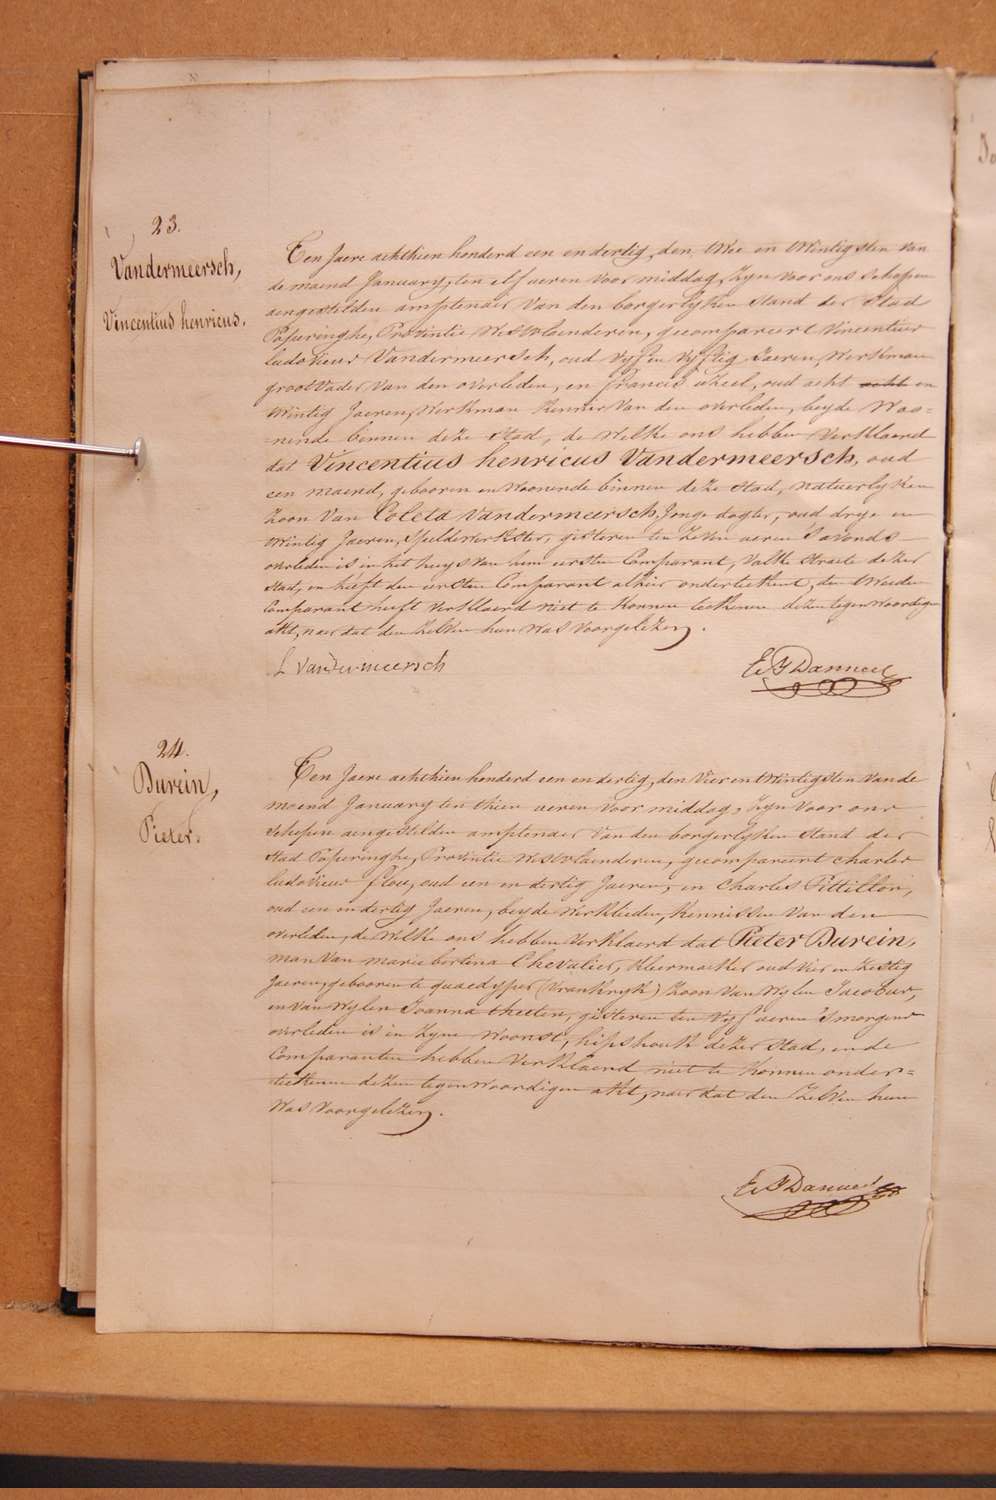 23.
Vandermeersch,
Vincentius henricus.
Ten Jaere achthien honderd een en dertig, den twee en twintigsten van
de maend January, ten elf ueren voor middag, zyn voor ons Schepen
aengestelden amptenaer van den borgerlyken Stand der Stad
Poperinghe, Provintie Westvlaenderen, gecompareert Vincentius
Ludovicus Vandermeersch, oud vyf en vyftig Jaeren, Werkman
groot Vader van den overleden, en Francis oud acht en
twintig Jaeren, Werkman Kenner van den overleden, beyde Woo=
=nende binnen deze Stad, de welke ons hebben verklaerd
dat Vincentius henricus Vandermeersch, oud
een maend, gebooren en woonende binnen deze Stad, natuerlyken
Zoon van Coleta Vandermeersch, Jonge dogter, oud drye en
twintig Jaeren, Speldewerkster, gisteren ten zeven ueren S'avonds
overleden is in het huys van hem eersten Comparant, Valke Straete dezer
Stad, en heeft den eersten Comparant alhier onderteekent, den tweeden
Comparant heeft verklaerd niet te konnen teekenen dezen tegenwoordigen
akt, naer dat den zelven hun was voorgelezen.
L Vandermeersch
24.
Durein,
Pieter.
Ten Jaere achthien honderd een en dertig, den vier en twintigsten van de
maend January ten thien ueren voor middag, zyn voor ons
Schepen aengestelden amptenaer van den borgerlyken Stand der
Stad Poperinghe, Provintie Westvlaenderen, gecompareert Charles
Ludovicus flou, oud een en dertig Jaeren, en Charles Pittillon,
oud een en dertig Jaeren, beyde Werklieden, Kennissen van den
overleden, de welke ons hebben verklaerd dat Pieter Durein,
man van marie bertina Chevalier, kleermaeker oud vier en zestig
Jaeren, gebooren te quaedyper (Vrankryk) Zoon van wylen Jacobus,
en van wylen Joanna theeten, gisteren ten vyf ueren S'morgens
overleden is in zyne woonst, hipshouk dezer Stad, en de
Comparanten hebben verklaerd niet te konnen onder=
=teekenen dezen tegenwoordigen akt, naer dat den zelven hun
was voorgelezen.